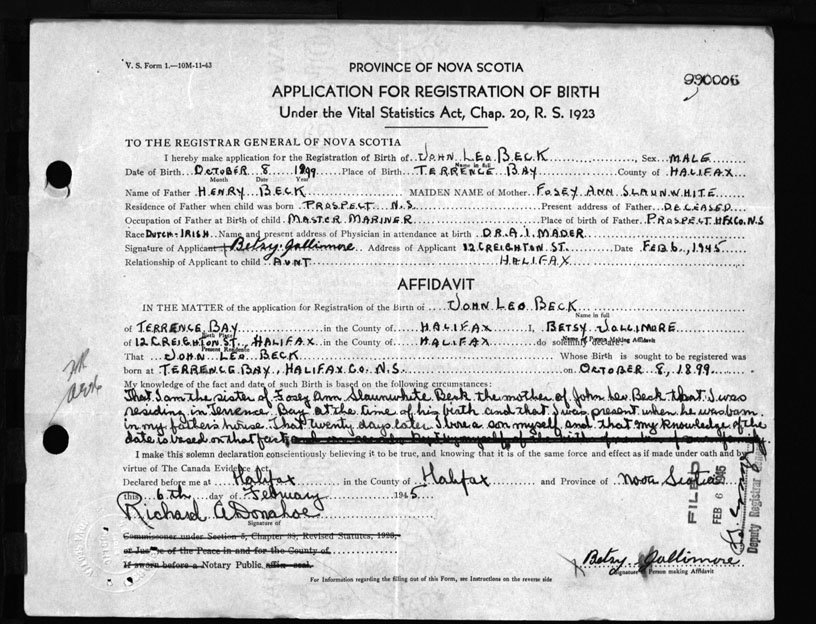 V. S. Form 1.—10M-11-43
PROVINCE OF NOVA SCOTIA
990006
APPLICATION FOR REGISTRATION OF BIRTH
Under the Vital Statistics Act, Chap. 20, R. S. 1923
TO THE REGISTRAR GENERAL OF NOVA SCOTIA
I hereby make application for the Registration of Birth of JOHN LEO BECK Sex MALE
Name in full
Date of Birth OCTOBER 8 1899 Place of Birth TERRENCE BAY County of HALIFAX
Month Date Year
Name of Father HENRY BECK MAIDEN NAME of Mother FOSEY ANN SLAUNWHITE
Residence of Father when child was born PROSPECT N.S Present address of Father DECEASED
Occupation of Father at Birth of child MASTER MARINER Place of birth of Father PROSPECT HFX CO. N.S
Race DUTCH-IRISH Name and present address of Physician in attendance at birth DR. A. I. MADER
Signature of Applicant Betsy Jollimore Address of Applicant 12 CREIGHTON ST. Date FEB 6, 1945
Relationship of Applicant to child AUNT HALIFAX
AFFIDAVIT
IN THE MATTER of the application for Registration of the Birth of JOHN LEO BECK
Name in full
of TERRENCE BAY in the County of HALIFAX I, BETSY JOLLIMORE
Birth Place Name of Person Making Affidavit
of 12 CREIGHTON ST., HALIFAX in the County of HALIFAX do solemnly declare:
Present Residence
That JOHN LEO BECK Whose Birth is sought to be registered was
born at TERRENCE BAY, HALIFAX CO. N.S. on OCTOBER 8, 1899.
My knowledge of the fact and date of such Birth is based on the following circumstances:
That I am the sister of Fosey Ann Slaunwhite Beck the mother of John Leo Beck that I was
residing in Terence Bay at the time of his birth and that I was present when he was born
in my father's house. That twenty days later I bore a son myself and that my knowledge of the
date is based on that fact
I make this solemn declaration conscientiously believing it to be true, and knowing that it is of the same force and effect as if made under oath and by
virtue of The Canada Evidence Act.
Declared before me at Halifax in the County of Halifax and Province of Nova Scotia
this 6th day of February 1945
Richard A Donahoe
Signature of
Commissioner under Section 5, Chapter 38, Revised Statutes, 1923,
or Justice of the Peace in and for the County of
If sworn before a Notary Public, affix seal.
Betsy Jollimore
Signature of Person making Affidavit
For Information regarding the filling out of this Form, see Instructions on the reverse side
FILED
FEB 6 1945
Deputy Registrar